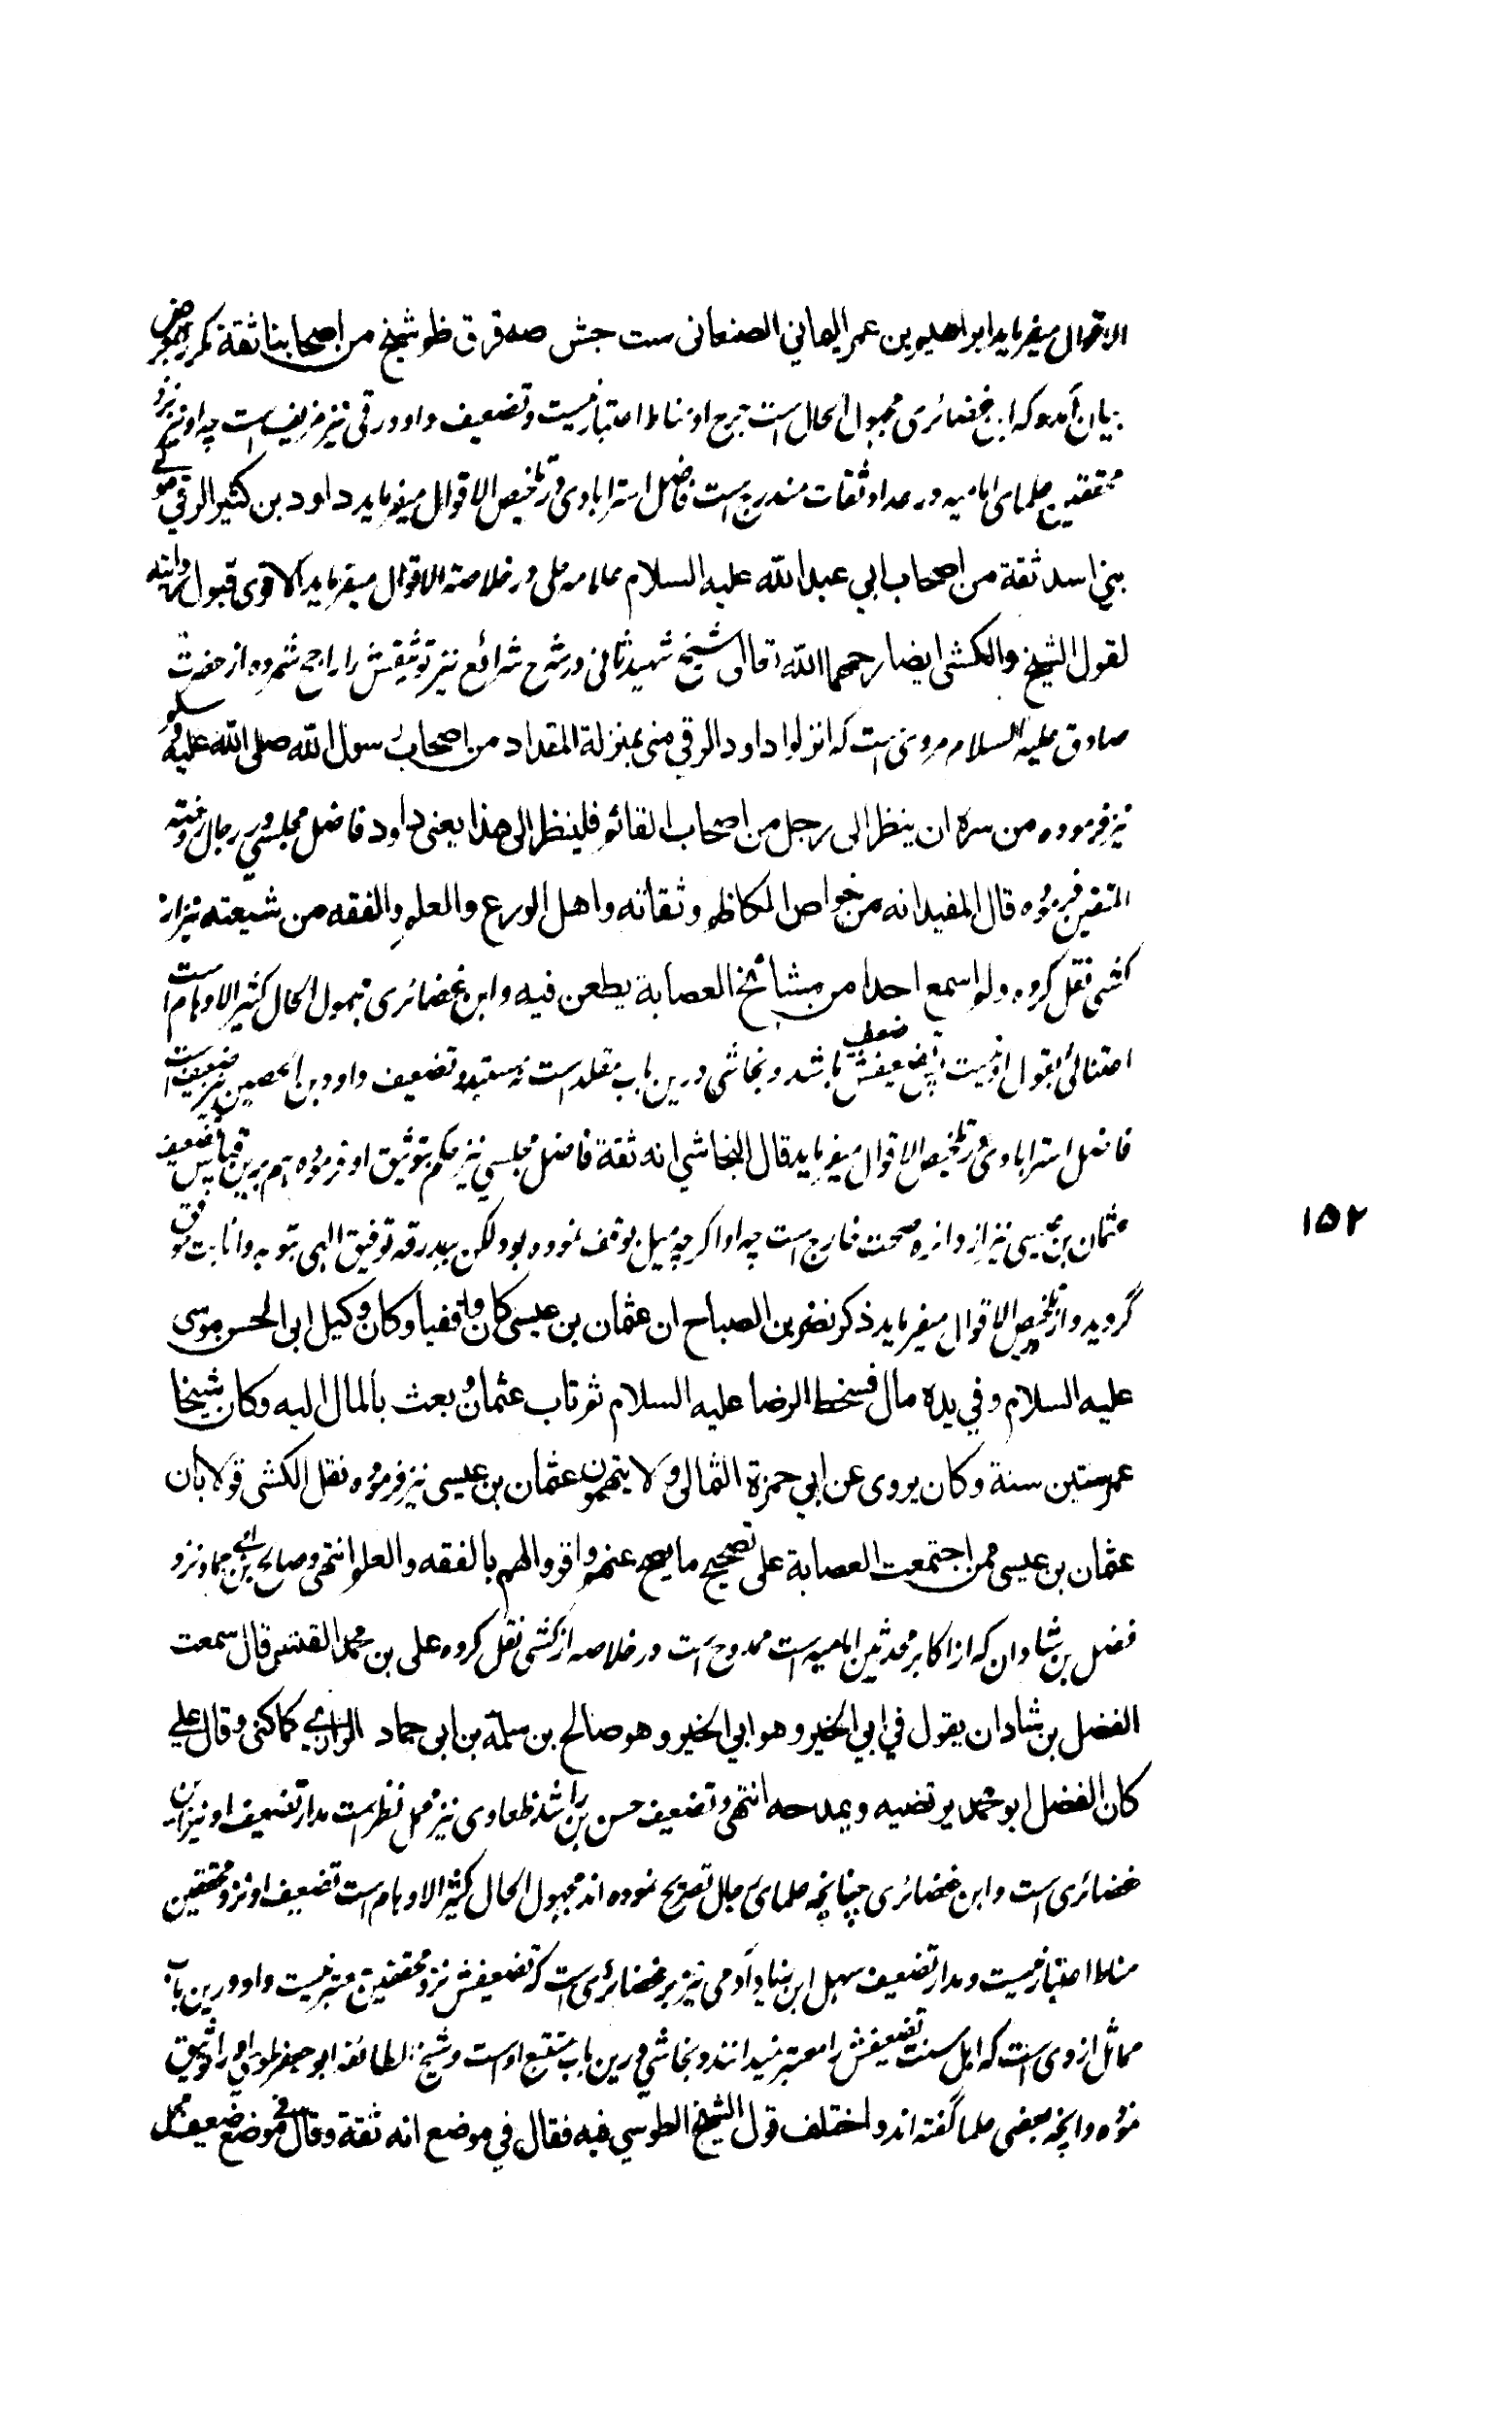 الاقوال میفرماید ابراهیم بن عمر الیمانی الصنعانی ست جش صه ق ر ق ظم شیخ من اصحابنا ثقة مکرر در معرض
بیان آمده که ابن غضائری مجهول الحال است جرح او مناط اعتبار نیست و تضعیف داود رقی نیز مزیف است چه او نیز نزد
محققین علمای امامیه در عداد ثقات مندرج است فاضل استرابادی در تلخیص الاقوال میفرماید داود بن کثیر الرقی مولی
بنی اسد ثقة من اصحاب ابی عبد الله علیه السلام علامه حلی در خلاصة الاقوال میفرماید الاقوی قبول روایته
لقول الشیخ والکشی ایضا رحمهما الله تعالی شیخ شهید ثانی در شرح شرائع نیز توثیقش را راجح شمرده از حضرت
صادق علیه السلام مروی ست که انزلوا داود الرقی منی بمنزلة المقداد من اصحاب رسول الله صلی الله علیه وسلم
نیز فرموده من سره ان ینظر الی رجل من اصحاب القائم فلینظر الی هذا یعنی داود فاضل مجلسی در رجال روضة
المتقین فرموده قال المفید انه من خواص الکاظم وثقاته واهل الورع والعلم والفقه من شیعته نیز از
کشی نقل کرده ولم اسمع احدا من مشائخ العصابة یطعن فیه وابن غضائری مجهول الحال کثیر الاوهام است
اعتنائی بقول او نیست تضعیفش ضعیف باشد و نجاشی درین باب مقلد است نه مستبد و تضعیف داود بن الحصین نیز ضعیف است
فاضل استرابادی در تلخیص الاقوال میفرماید قال النجاشی انه ثقة فاضل مجلسی نیز حکم بتوثیق او فرموده هم برین قیاس تضعیف
عثمان بن عیسی نیز از دائره صحت خارج است چه او اگر چه میل بوقف نموده بود لکن ببدرقه توفیق الهی بتوبه وانابت موفق
گردید و در تلخیص الاقوال میفرماید ذکر نضر بن الصباح ان عثمان بن عیسی کان واقفیا وکان وکیل ابی الحسن موسی
علیه السلام وفی یده مال فسخط الرضا علیه السلام ثم تاب عثمان وبعث بالمال الیه وکان شیخا
عمر ستین سنة وکان یروی عن ابی حمزة الثمالی ولا یتهمون عثمان بن عیسی نیز فرموده نقل الکشی قولا بان
عثمان بن عیسی ممن اجتمعت العصابة علی تصحیح ما یصح عنهم واقروا لهم بالفقه والعلم انتهی و صالح بن ابی حماد نزد
فضل بن شادان که از اکابر محدثین امامیه است ممدوح است در خلاصه از کشی نقل کرده علی بن محمد القتیبی قال سمعت
الفضل بن شادان یقول فی ابی الخیر وهو ابی الخیر وهو صالح بن سلمة بن ابی حماد الرازی کما کنی وقال علی
کان الفضل ابو محمد یرتضیه ویمدحه انتهی و تضعیف حسن بن راشد طفاوی نیز محل نظر است مدار تضعیف او نیز ابن
غضائری است و ابن غضائری چنانچه علمای رجال تصریح نموده اند مجهول الحال کثیر الاوهام است تضعیف او نزد محققین
مناط اعتبار نیست و مدار تضعیف سهل ابن زیاد آدمی نیز بر غضائری است که تضعیفش نزد محققین معتبر نیست و او درین باب
مماثل ازدی است که اهل سنت تضعیفش را معتبر نمیدانند و نجاشی درین باب متتبع اوست و شیخ الطائفه ابو جعفر طوسی او را توثیق
نموده و آنچه بعضی علما گفته اند واختلف قول الشیخ الطوسی فیه فقال فی موضع انه ثقة وقال فی موضع ضعیف محل
۱۵۲